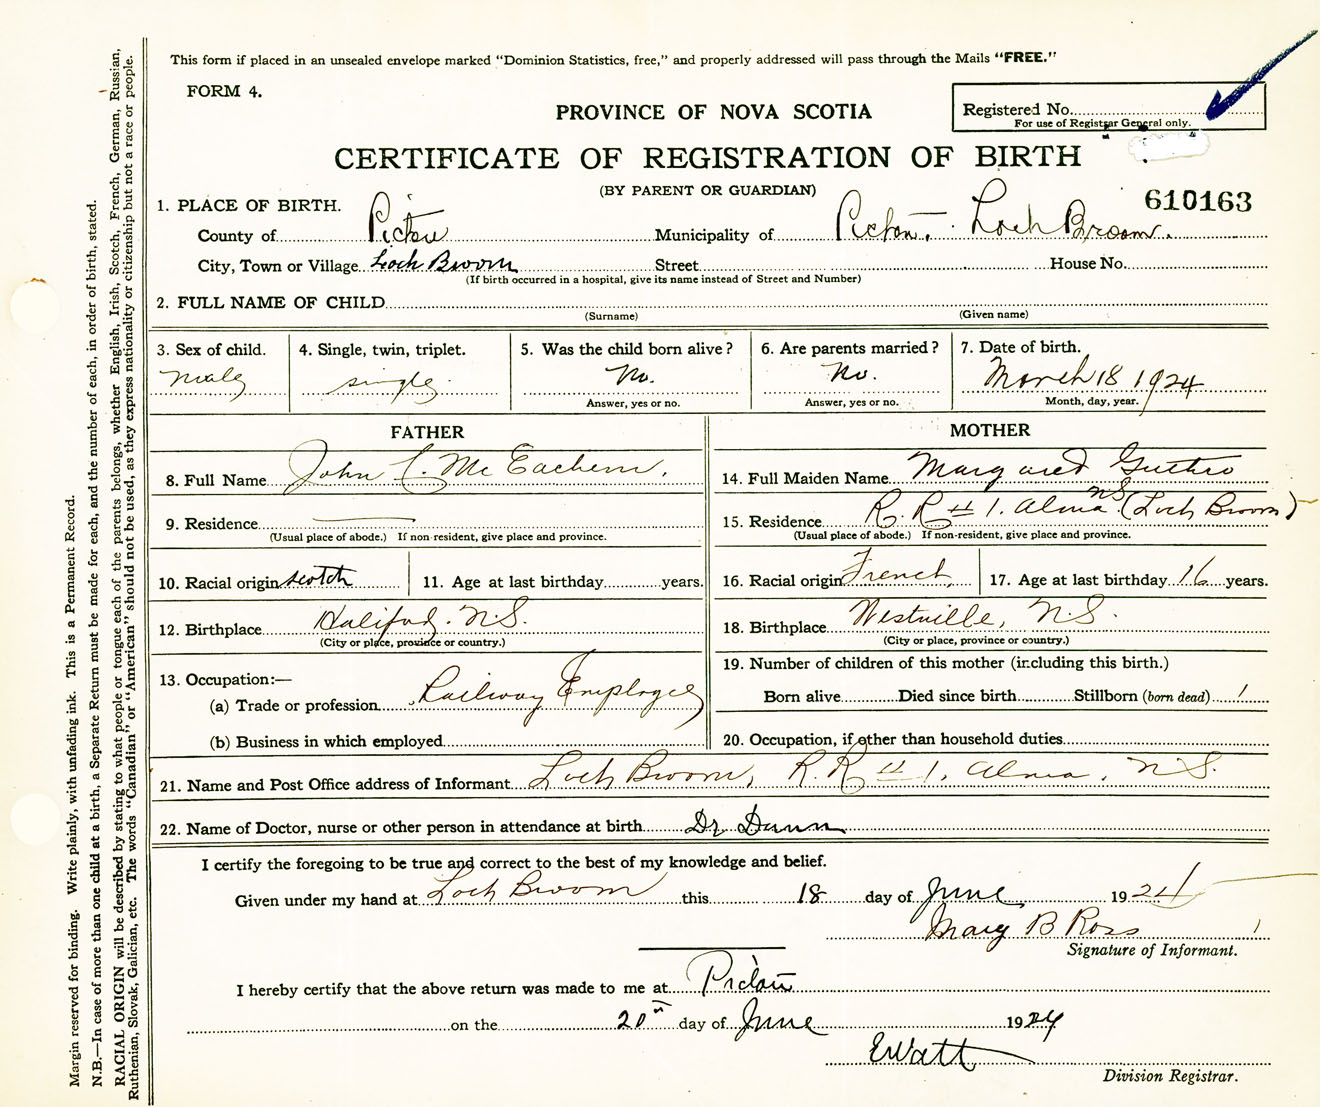 This form if placed in an unsealed envelope marked "Dominion Statistics, free," and properly addressed will pass through the Mails "FREE."
FORM 4.
PROVINCE OF NOVA SCOTIA
Registered No.
For use of Registrar General only.
CERTIFICATE OF REGISTRATION OF BIRTH
(BY PARENT OR GUARDIAN)
610163
1. PLACE OF BIRTH.
County of Pictou Municipality of Pictou, Loch Broom.
City, Town or Village Loch Broom Street House No.
(If birth occurred in a hospital, give its name instead of Street and Number)
2. FULL NAME OF CHILD
(Surname) (Given name)
3. Sex of child. 4. Single, twin, triplet. 5. Was the child born alive? 6. Are parents married? 7. Date of birth.
Male single No. No. March 18 1924
Answer, yes or no. Answer, yes or no. Month, day, year.
FATHER
8. Full Name John C. McEachern.
9. Residence —
(Usual place of abode.) If non-resident, give place and province.
10. Racial origin Scotch 11. Age at last birthday years.
12. Birthplace Halifax. N.S.
(City or place, province or country.)
13. Occupation:—
(a) Trade or profession Railway Employee
(b) Business in which employed
MOTHER
14. Full Maiden Name Margared Guthro
15. Residence R. R # 1. Alma N.S. (Loch Broom)
(Usual place of abode.) If non-resident, give place and province.
16. Racial origin French 17. Age at last birthday 16 years.
18. Birthplace Westville, N.S.
(City or place, province or country.)
19. Number of children of this mother (including this birth.)
Born alive Died since birth Stillborn (born dead) 1
20. Occupation, if other than household duties
21. Name and Post Office address of Informant Loch Broom, R.R # 1. Alma, N.S.
22. Name of Doctor, nurse or other person in attendance at birth Dr Dunn
I certify the foregoing to be true and correct to the best of my knowledge and belief.
Given under my hand at Loch Broom this 18 day of June 1924
Mary B Ross
Signature of Informant.
I hereby certify that the above return was made to me at Pictou
on the 20th day of June 1924
E Watt
Division Registrar.
Margin reserved for binding. Write plainly, with unfading ink. This is a Permanent Record.
N.B.—In case of more than one child at a birth, a Separate Return must be made for each, and the number of each, in order of birth, stated.
RACIAL ORIGIN will be described by stating to what people or tongue each of the parents belongs, whether English, Irish, Scotch, French, German, Russian,
Ruthenian, Slovak, Galician, etc. The words "Canadian" or "American" should not be used, as they express nationality or citizenship but not a race or people.